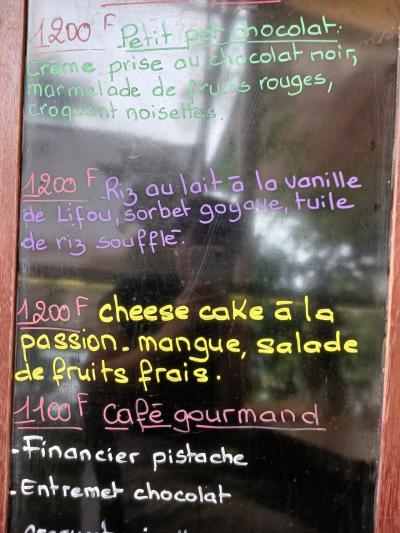 1200 F Petit pot chocolat:
Crème prise au chocolat noir,
marmelade de fruits rouges,
croquant noisettes.
1200 F Riz au lait à la vanille
de Lifou, sorbet goyave, tuile
de riz soufflé.
1200 F cheese cake à la
passion-mangue, salade
de fruits frais.
1100 F Café gourmand
.Financier pistache
.Entremet chocolat